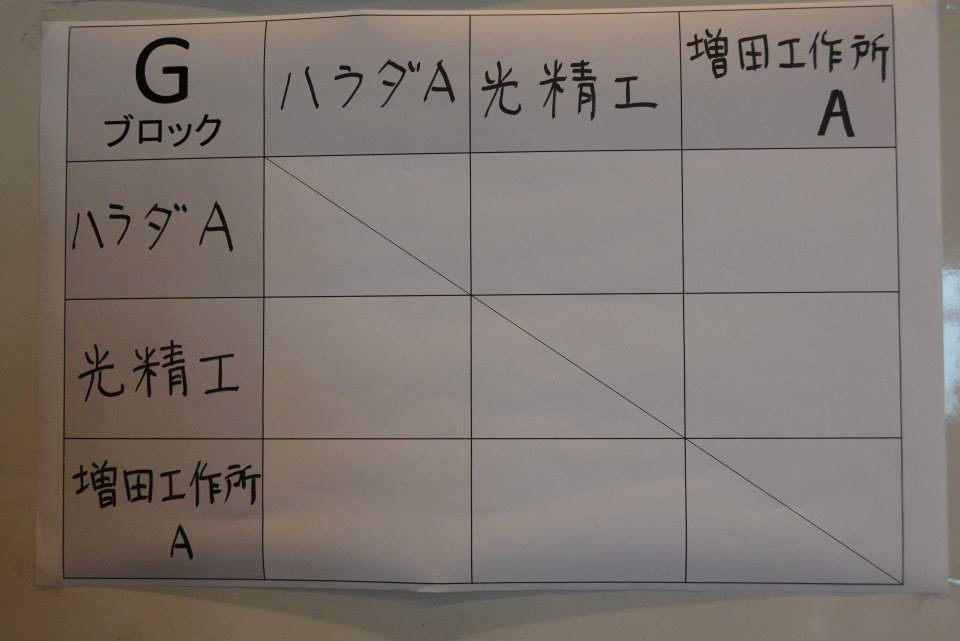 G
ブロック
ハラダA
光精工
増田工作所
A
ハラダA
光精工
増田工作所
A